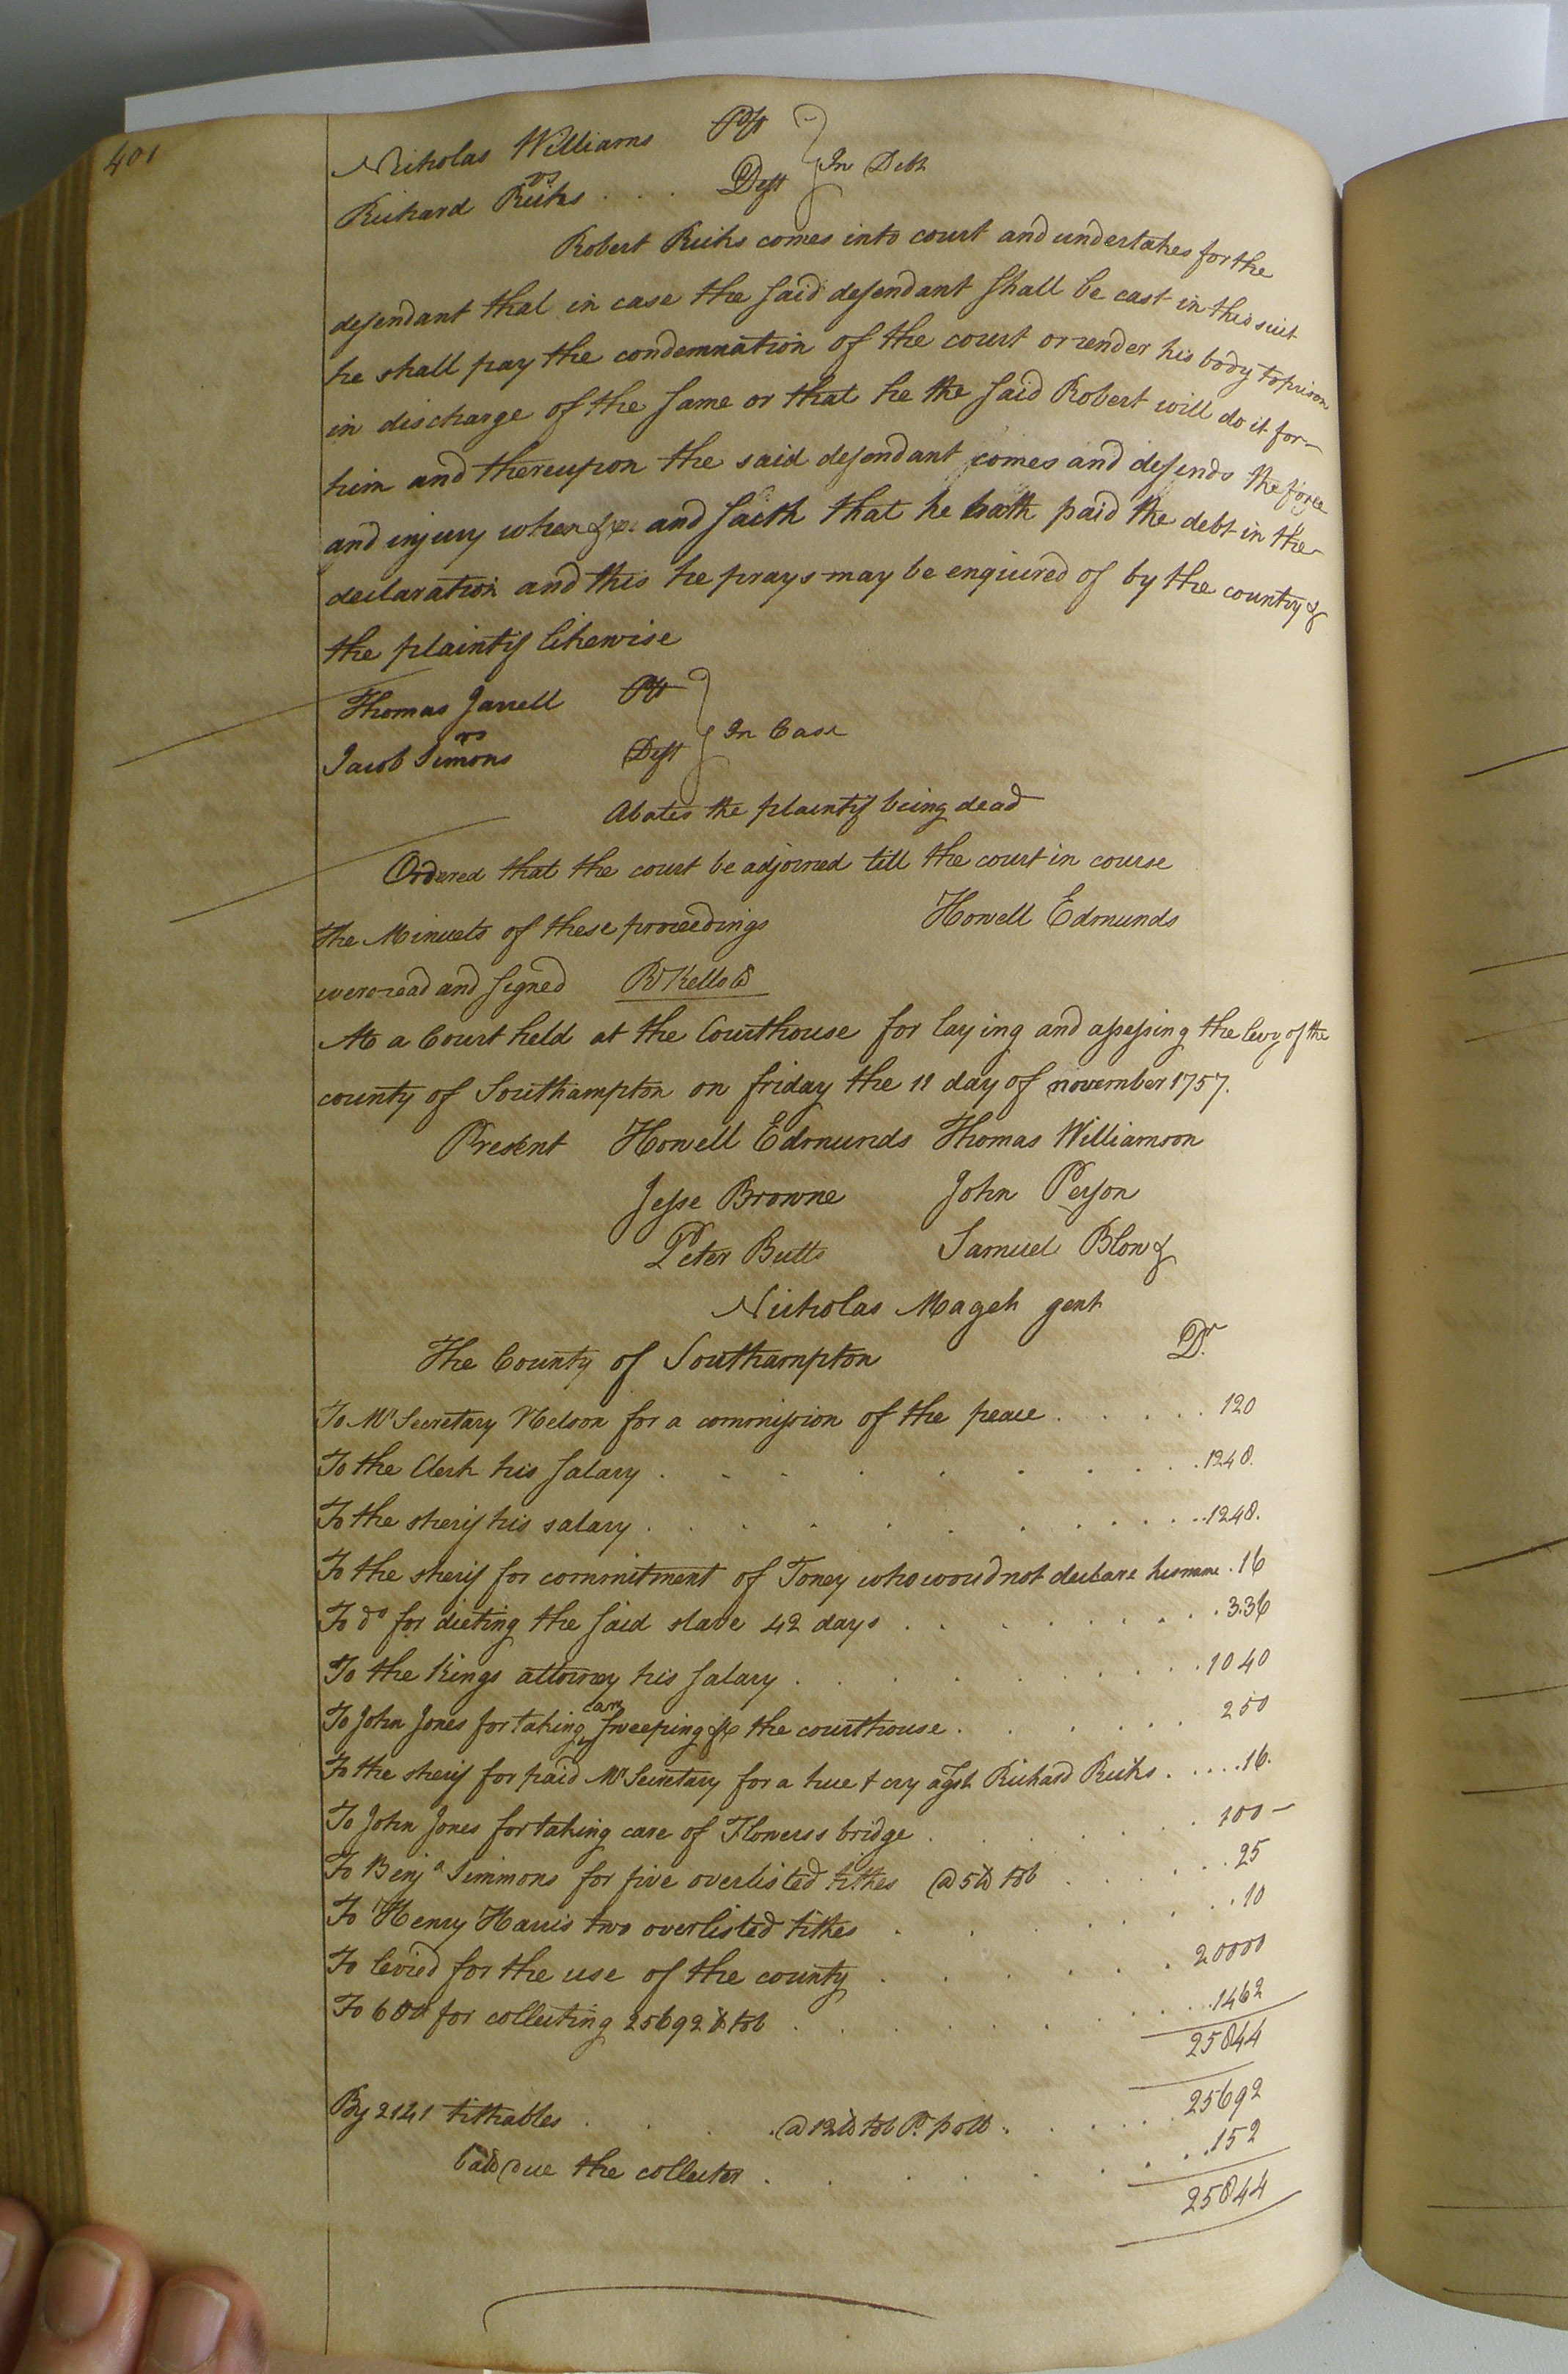 401
Nicholas Williams Plt
vs } In Debt
Richard Ricks . . . . Deft
Robert Ricks comes into court and undertakes for the
defendant that in case the said defendant shall be cast in this suit
he shall pay the condemnation of the court or render his body to prison
in discharge of the same or that he the said Robert will do it for
him and thereupon the said defendant comes and defends the force
and injury when &c and saith that he hath paid the debt in the
declaration and this he prays may be enquired of by the country &
the plaintif likewise
Thomas Jarrell Plt
vs } In Case
Jacob Simons Deft
Abates the plaintif being dead
Ordered that the court be adjorned till the court in course
The Minuets of these proceedings Howell Edmunds
were read and signed R Kello
At a Court held at the Courthouse for laying and assessing the levy of the
county of Southampton on friday the 11 day of november 1757.
Present Howell Edmunds Thomas Williamson
Jesse Browne John Person
Peter Butts Samuel Blow &
Nicholas Maget gent
The County of Southampton Dr.
To Mr Secretary Nelson for a commission of the peace . . . . . . 120
To the Clerk his salary . . . . . . . . . 1248.
To the sherif his salary . . . . . . . . . . 1248.
To the sherif for commitment of Toney who woud not declare his name . 16
To do for dieting the said slave 42 days . . . . . . 336
To the Kings attorney his salary . . . . . . . . 1040
To John Jones for taking care sweeping &c the courthouse . . . . . . 250
To the sherif for paid Mr Secretary for a hue & cry agst Richard Ricks . . . . . 16.
To John Jones for taking care of Flowerss bridge . . . . . . . 100 -
To Benja Simmons for five overlisted tithes @ 5 lb tob . . . . . 25
To Henry Harris two overlisted tithes . . . . . . . 10
To levied for the use of the county . . . . . . . 20000
To 6 for collecting 25692 lb tob . . . . . . . . 1462
25844
By 2141 tithables . . . . @ 12 lb tob Pr poll . . . . . 25692
due the collector . . . . . . . . 152
25844